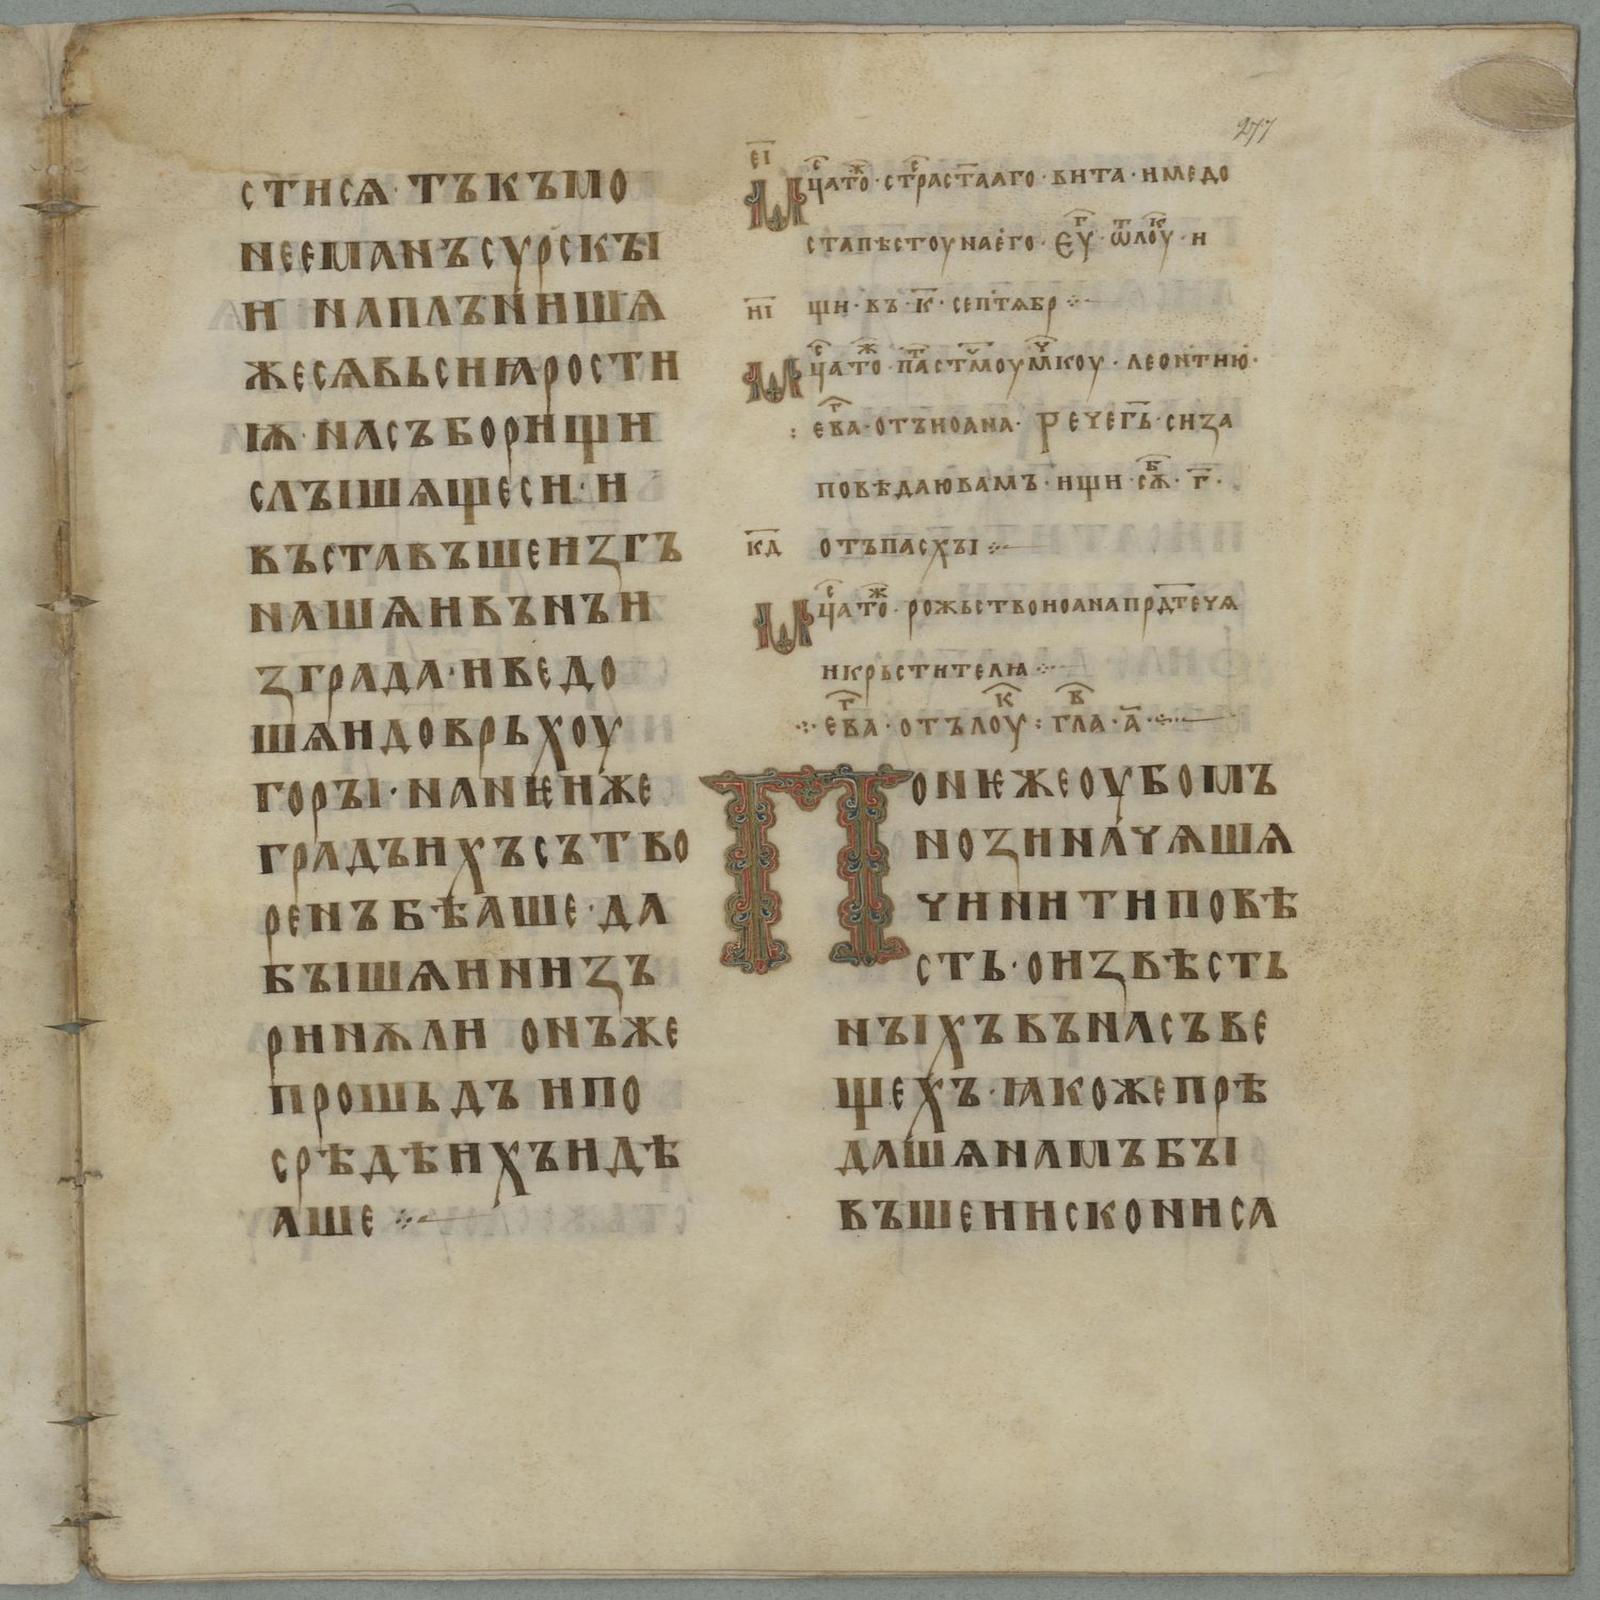 стисѧ· тъкъмо
нееманъсурскъı
и наплънишѧ
жесѧвьсиꙗрости
ѩ· насъборищи
слъıшѧщеси· и
въставъшеизгъ
нашѧивънъи
зграда· иведо
шѧидоврьхоу
горъı· наниеиже
градъихъсътво
ренъбѣаше· да
бъıшѧининзъ
ринѫли онъже
прошьдъ ипо
срѣдѣихъидѣ
аше ⁘
277
е҃ı
Мⷭ҇цатогоⷤ· сⷭ҇трастааго· вита· имедо
стапѣстоунаѥго· Єуⷢ· ѿлоуⷦ· и
н҃ı щи· въ· к҃· септѧбр ⁘
Мⷭ҇цатоⷤ· па҃ст҃моум҃ⷱкоу· леонтию·
: еваⷢ· отъиоана· Речег҃ь· сиза
повѣдаювамъ· ищи· сѫⷠ· г҃·
к҃д отъпасхъı ⁘
Мⷭ҇цатоⷤ· рожьствоиоанапрд҃течѧ
икрьстителꙗ ⁘
⁘ еваⷢ· отълоуⷦ : глаⷡ· а҃· ⁘
Понѥжеоубомъ
нозиначѧшѧ
чинитиповѣ
сть· оизвѣсть
нъıхъвънасъве
щехъ· ꙗкожепрѣ
дашѧнамъбъı
въшеиискониса